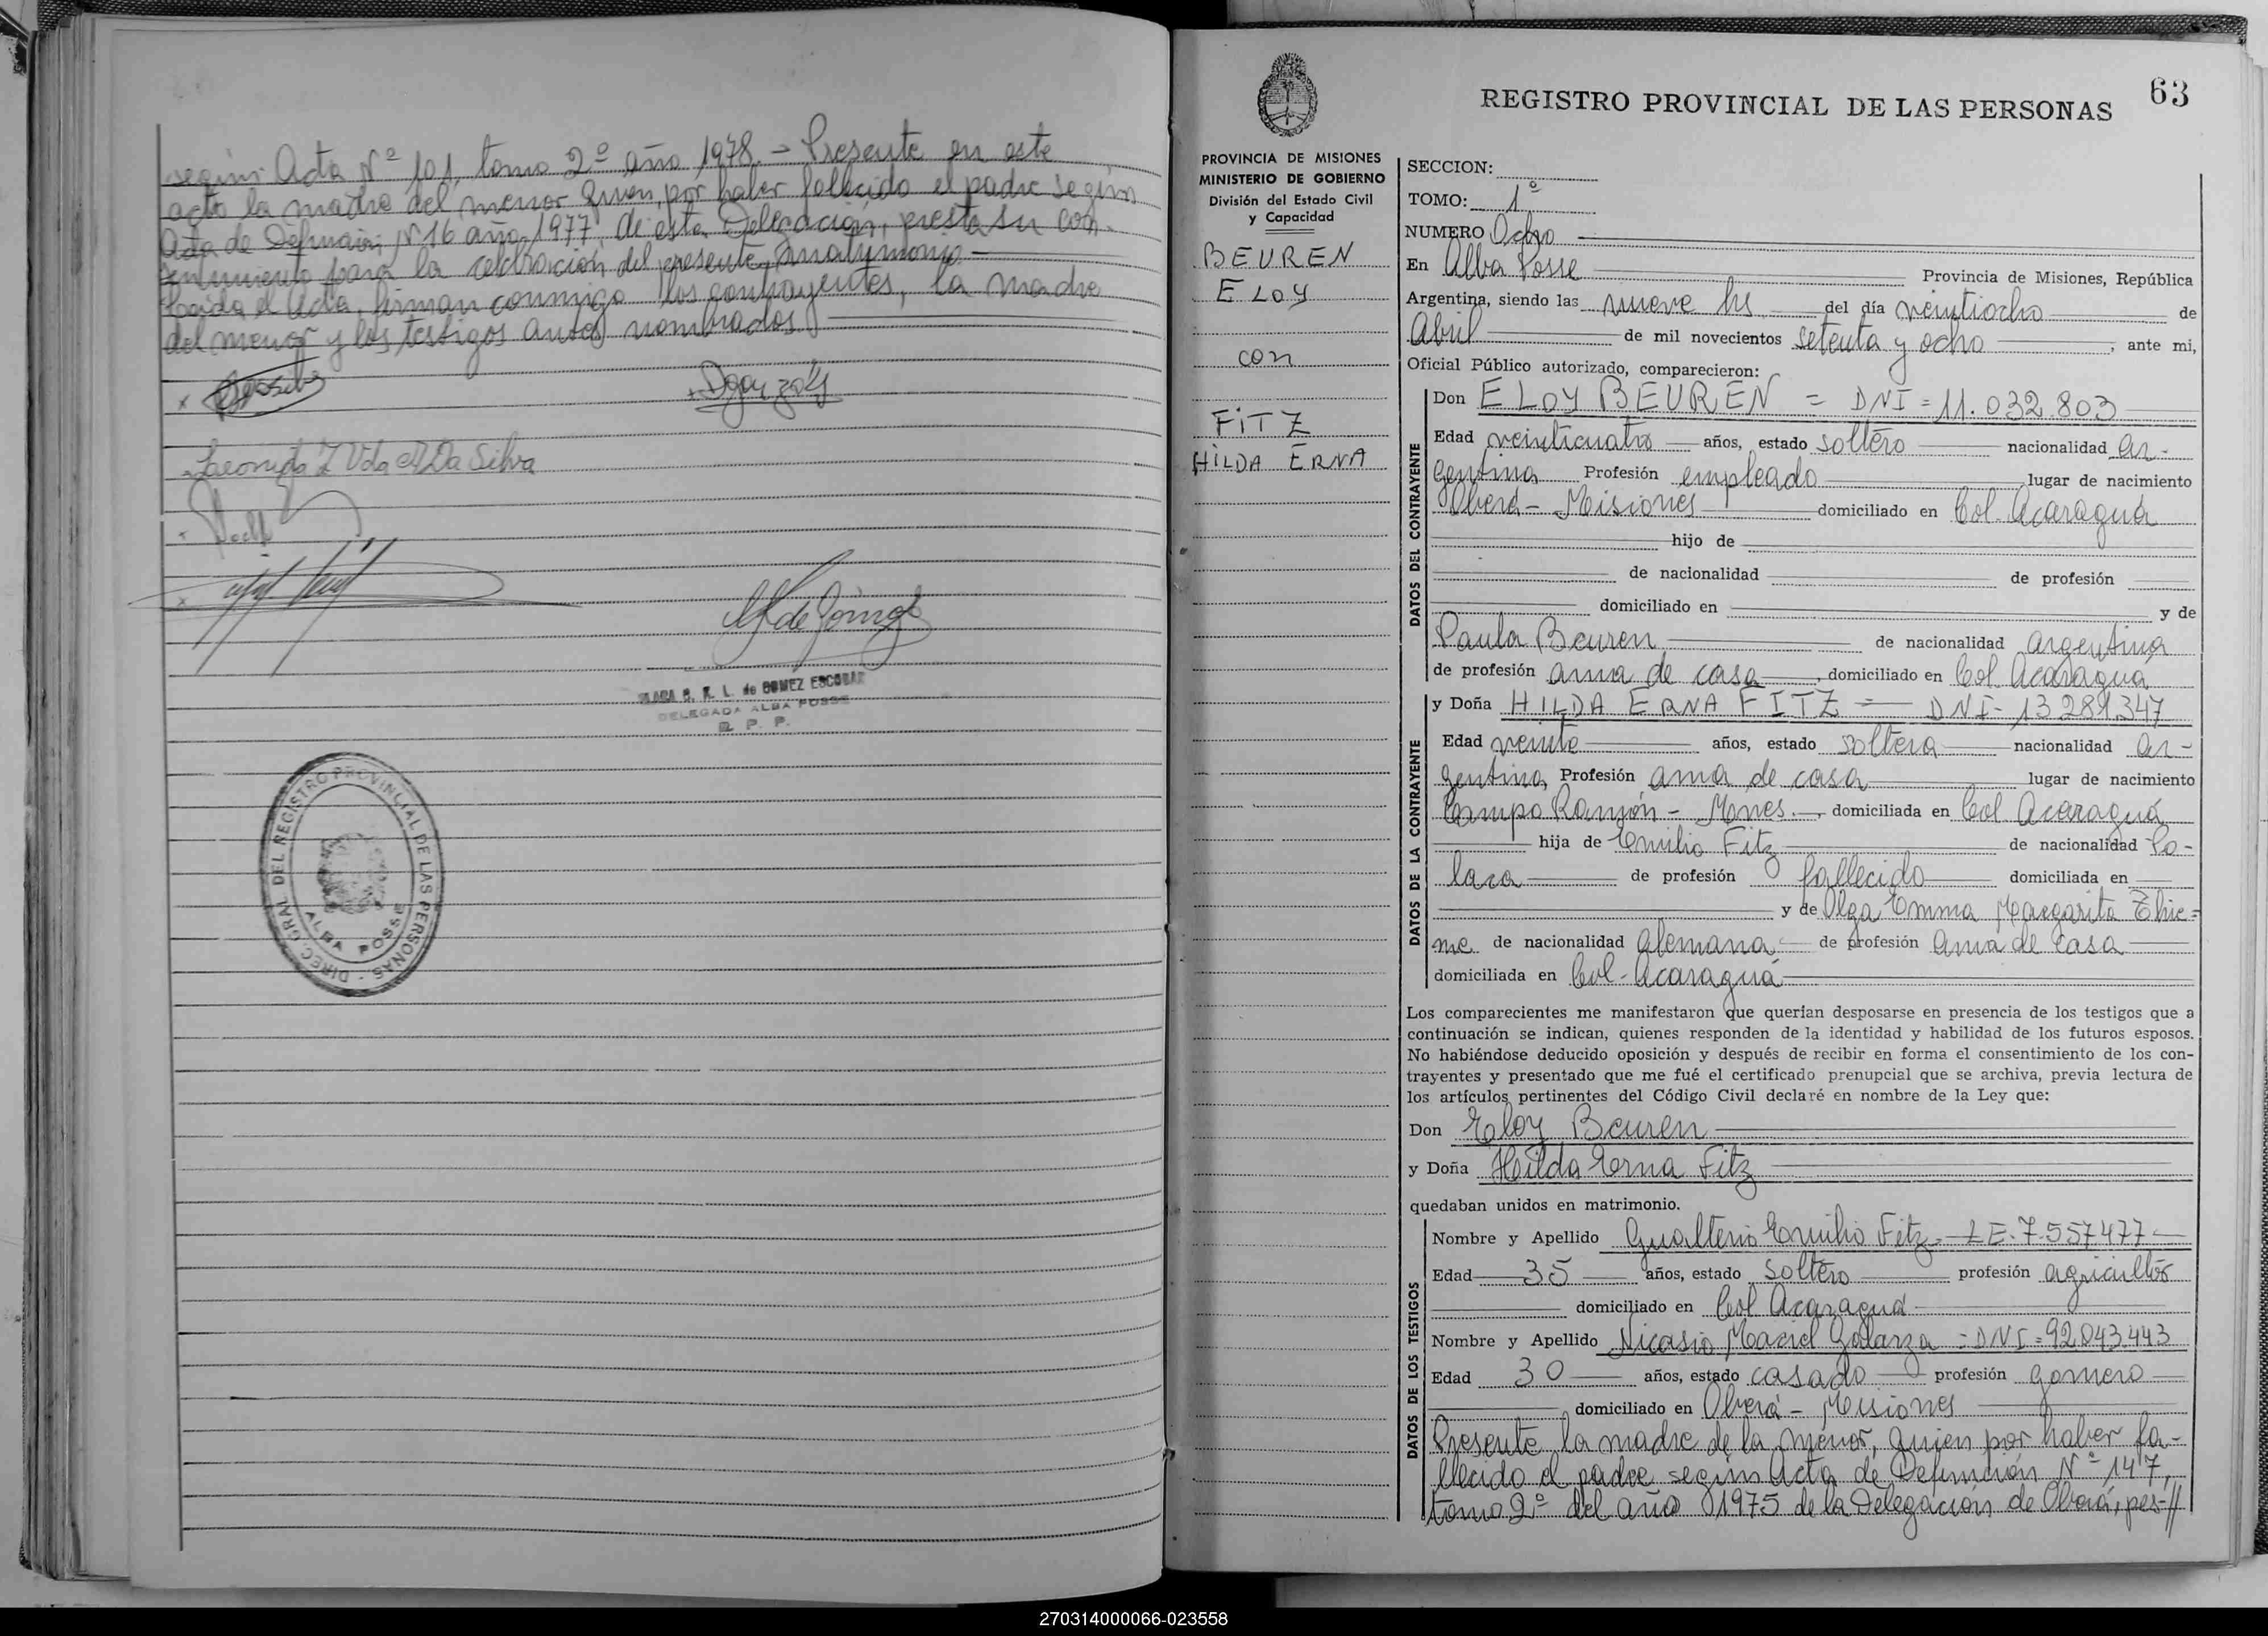 según Acta Nº 101, tomo 2º año 1978.- Presente en este
acto la madre del menor quien, por haber fallecido el padre según
Acta de Defunción Nº 16 año 1977, de esta Delegación, presta su con-
sentimiento para la celebración del presente matrimonio
Leída el Acta, firman conmigo los contrayentes, la madre
del menor y los testigos antes nombrados
Vda de Da Silva
de GOMEZ ESCOBAR
DELEGADA ALBA POSSE
R. P. P.
DIREC. GRAL. DEL REGISTRO PROVINCIAL DE LAS PERSONAS
ALBA POSSE
63
REGISTRO PROVINCIAL DE LAS PERSONAS
PROVINCIA DE MISIONES
MINISTERIO DE GOBIERNO
División del Estado Civil
y Capacidad
BEUREN
ELOY
con
FITZ
HILDA ERNA
SECCION:
TOMO: 1º
NUMERO Ocho
En Alba Posse Provincia de Misiones, República
Argentina, siendo las nueve hs del día veintiocho de
Abril de mil novecientos setenta y ocho, ante mi,
Oficial Público autorizado, comparecieron:
DATOS DEL CONTRAYENTE
Don ELOY BEUREN = DNI = 11.032.803
Edad veinticuatro años, estado soltero nacionalidad ar-
gentina Profesión empleado lugar de nacimiento
Oberá - Misiones domiciliado en Col. Acaraguá
hijo de
de nacionalidad de profesión
domiciliado en y de
Paula Beuren de nacionalidad argentina
de profesión ama de casa, domiciliado en Col. Acaraguá
DATOS DE LA CONTRAYENTE
y Doña HILDA ERNA FITZ = DNI - 13.289.347
Edad veinte años, estado soltera nacionalidad ar-
gentina Profesión ama de casa lugar de nacimiento
Campo Ramón - Mnes. - domiciliada en Col. Acaraguá
hija de Emilio Fitz de nacionalidad Po-
laca de profesión fallecido domiciliada en
y de Olga Emma Margarita Thie=
me de nacionalidad alemana de profesión ama de casa
domiciliada en Col. Acaraguá
Los comparecientes me manifestaron que querían desposarse en presencia de los testigos que a
continuación se indican, quienes responden de la identidad y habilidad de los futuros esposos.
No habiéndose deducido oposición y después de recibir en forma el consentimiento de los con-
trayentes y presentado que me fué el certificado prenupcial que se archiva, previa lectura de
los artículos pertinentes del Código Civil declaré en nombre de la Ley que:
Don Eloy Beuren
y Doña Hilda Erna Fitz
quedaban unidos en matrimonio.
DATOS DE LOS TESTIGOS
Nombre y Apellido Gualterio Emilio Fitz - LE. 7.557.477
Edad 35 años, estado soltero profesión agricultor
domiciliado en Col Acaraguá
Nombre y Apellido Nicasio Maciel Galarza = DNI = 92.043.443
Edad 30 años, estado casado profesión gomero
domiciliado en Oberá - Misiones
Presente la madre de la menor, quien por haber fa-
llecido el padre según Acta de Defunción Nº 147,
tomo 2º del año 1975 de la Delegación de Oberá, pres-//
270314000066-023558